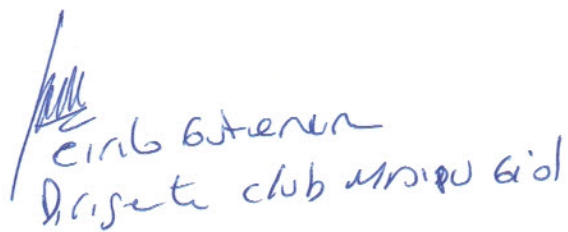 Cirilo Gutierrez
Dirigente club Maipu Giol